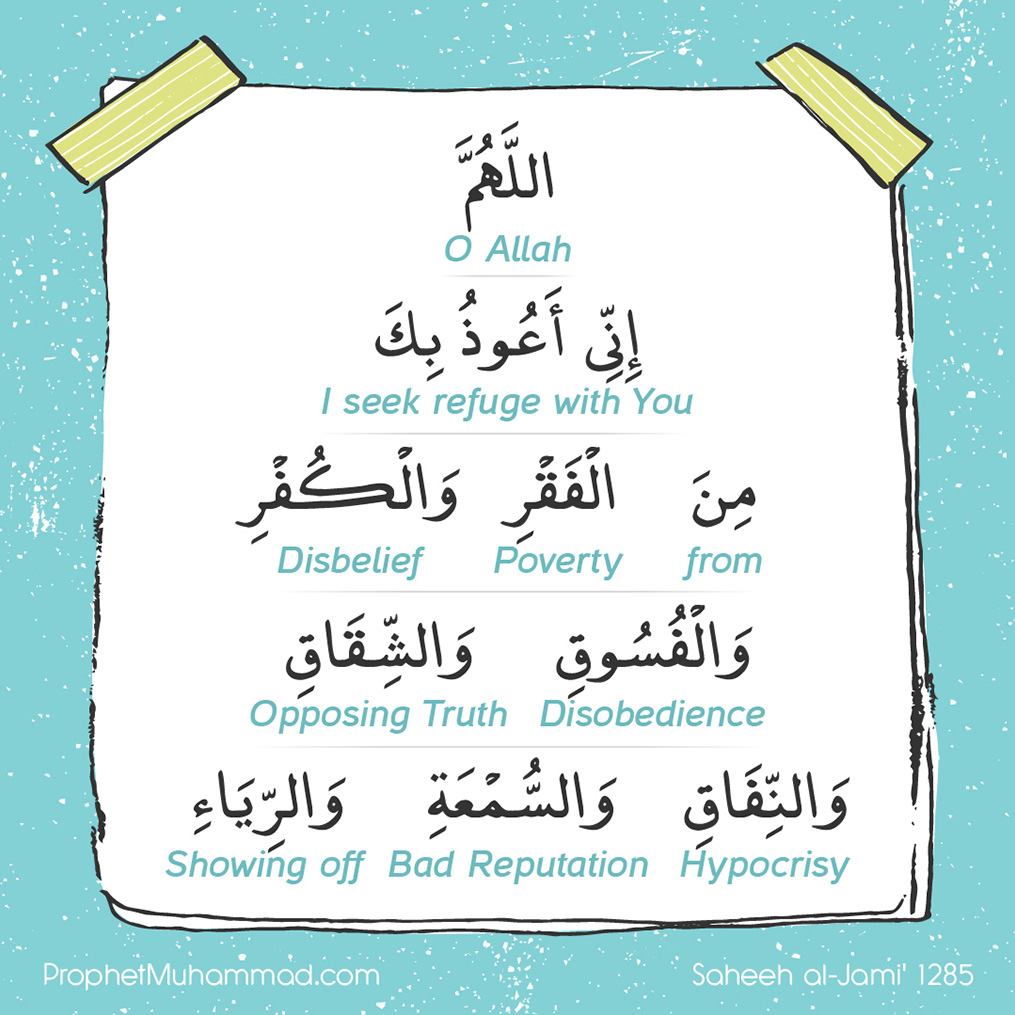 اللَّهُمَّ
O Allah
إِنِّي أَعُوذُ بِكَ
I seek refuge with You
مِنَ الْفَقْرِ وَالْكُفْرِ
Disbelief Poverty from
وَالْفُسُوقِ وَالشِّقَاقِ
Opposing Truth Disobedience
وَالنِّفَاقِ وَالسُّمْعَةِ وَالرِّيَاءِ
Showing off Bad Reputation Hypocrisy
ProphetMuhammad.com Saheeh al-Jami' 1285